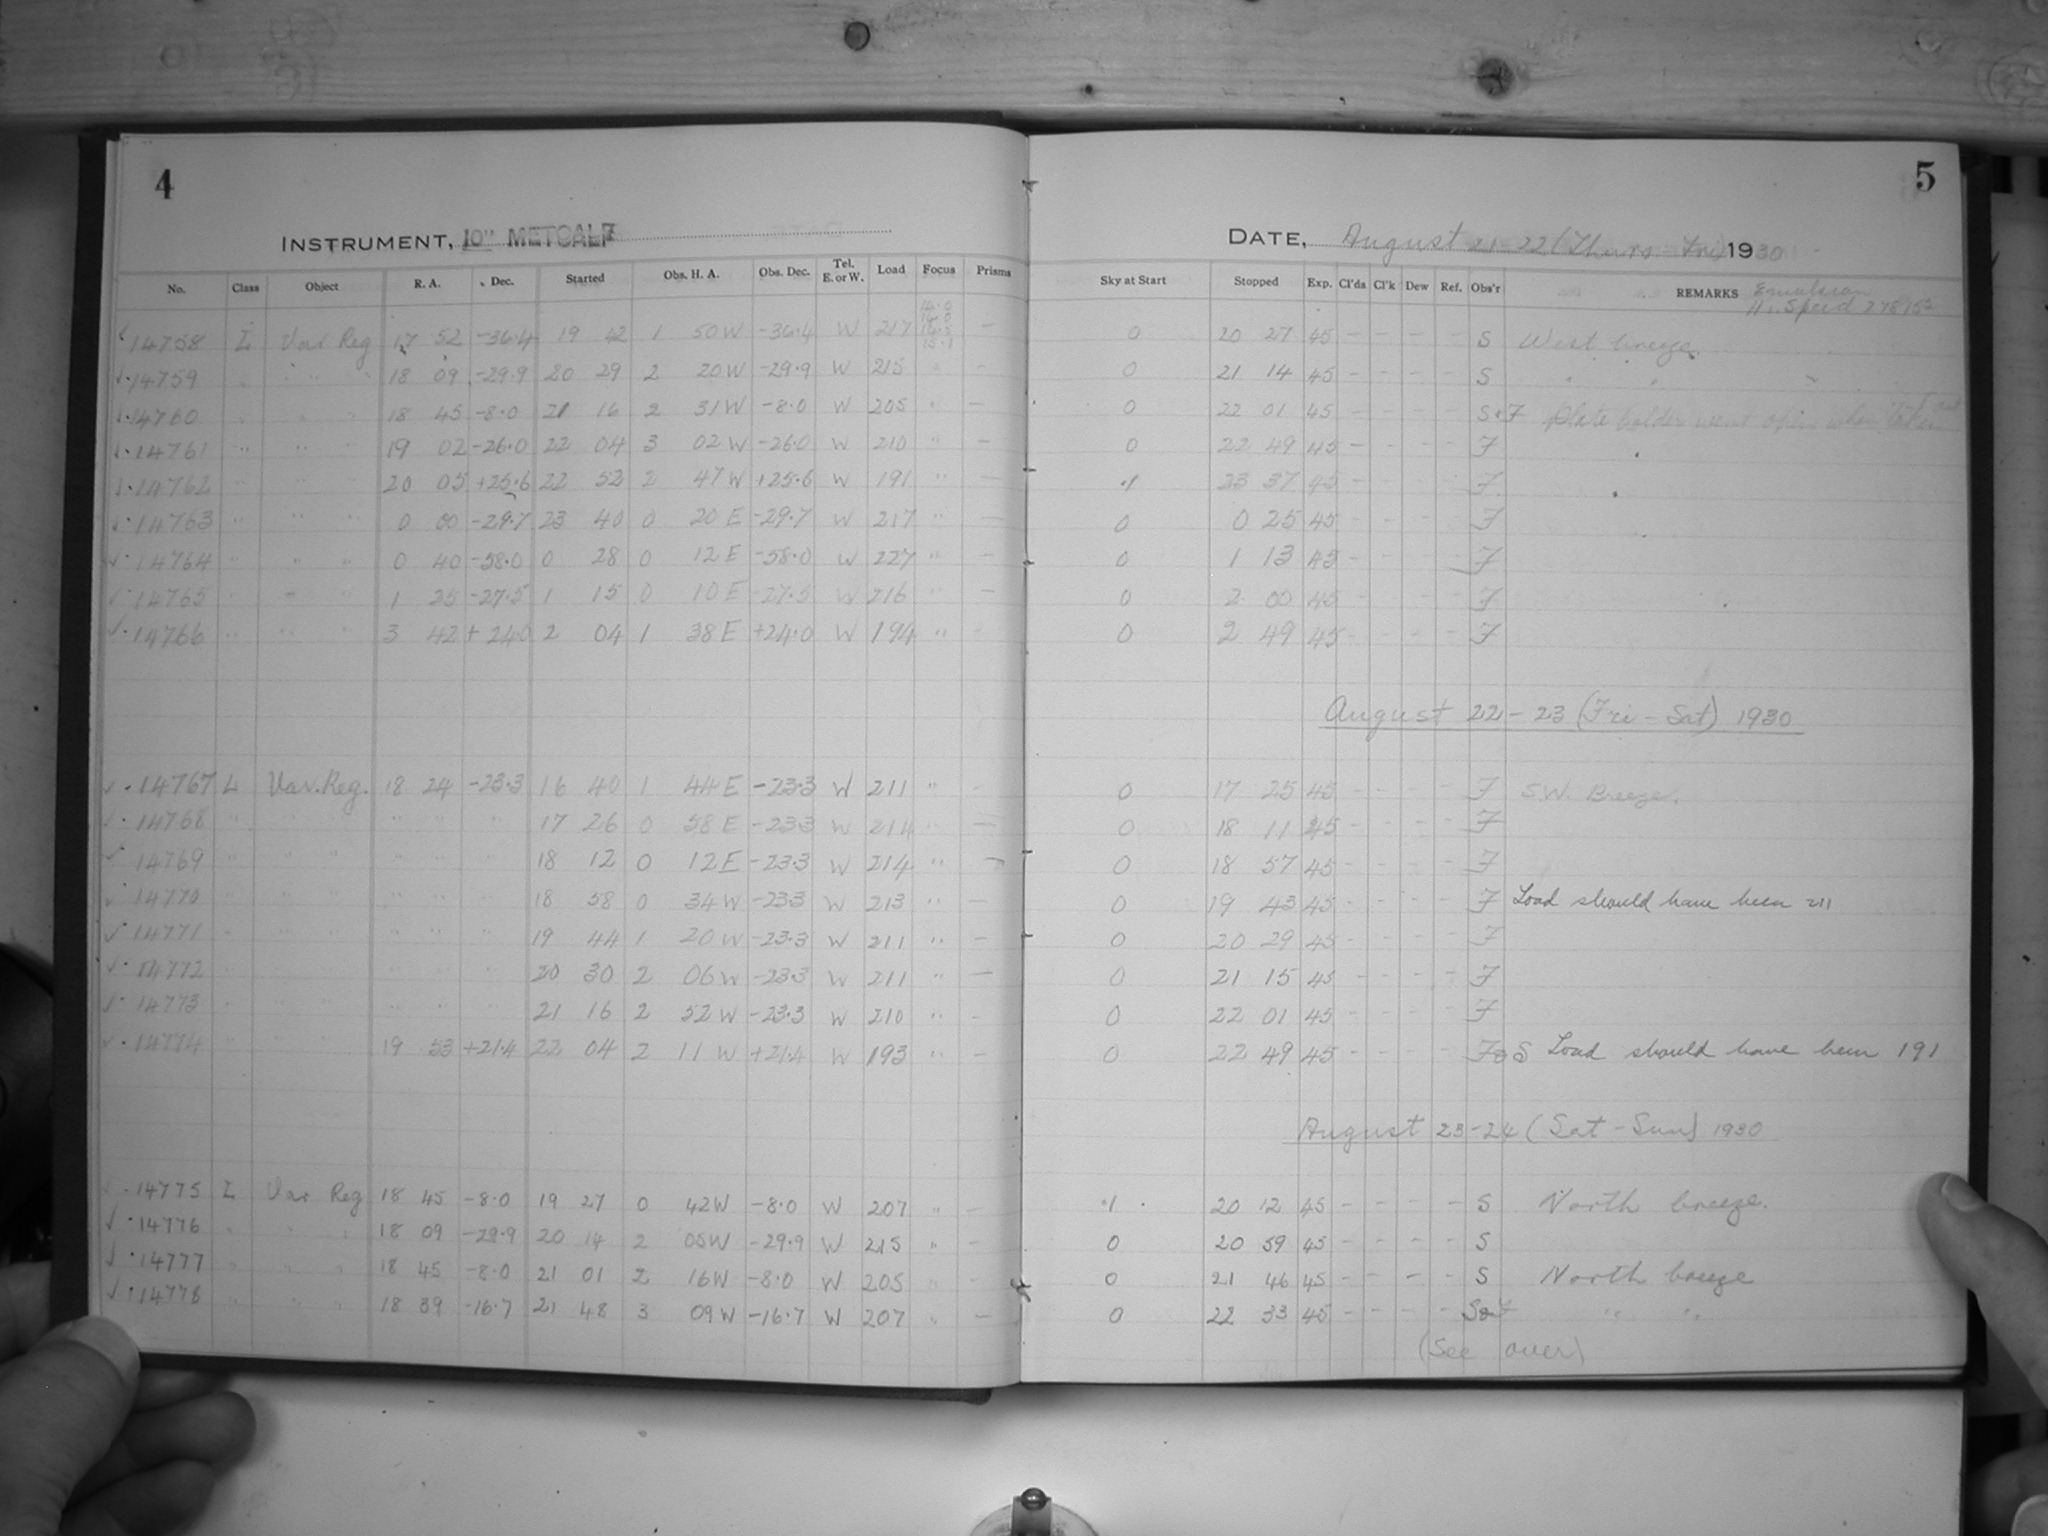 4
INSTRUMENT, 10" METCALF
No. Class Object R. A. Dec. Started Obs. H. A. Obs. Dec. Tel. E. or W. Load Focus Prisms
14758 L Var Reg 17 52 -36.4 19 42 1 50 W -36.4 W 217 —
14759 " " " 18 09 -29.9 20 29 2 20 W -29.9 W 215 " —
14760 " " " 18 45 -8.0 21 16 2 31 W -8.0 W 205 " —
14761 " " " 19 02 -26.0 22 04 3 02 W -26.0 W 210 " —
14762 " " " 20 05 +25.6 22 52 2 47 W +25.6 W 191 " —
14763 " " " 0 00 -29.7 23 40 0 20 E -29.7 W 217 " —
14764 " " " 0 40 -58.0 0 28 0 12 E -58.0 W 227 " —
14765 " " " 1 25 -27.5 1 15 0 10 E -27.5 W 216 " —
14766 " " " 3 42 +24.0 2 04 1 38 E +24.0 W 194 " -
14767 L Var. Reg. 18 24 -23.3 16 40 1 44 E -23.3 W 211 " -
14768 " " " " " " 17 26 0 58 E -23.3 W 214 " —
14769 " " " " " " 18 12 0 12 E -23.3 W 214 " —
14770 " " " " " " 18 58 0 34 W -23.3 W 213 " —
14771 " " " " " " 19 44 1 20 W -23.3 W 211 " —
14772 " " " " " " 20 30 2 06 W -23.3 W 211 " —
14773 " " " " " " 21 16 2 52 W -23.3 W 210 " -
14774 " " " 19 53 +21.4 22 04 2 11 W +21.4 W 193 " —
14775 L Var Reg 18 45 -8.0 19 27 0 42 W -8.0 W 207 " —
14776 " " " 18 09 -29.9 20 14 2 05 W -29.9 W 215 " —
14777 " " " 18 45 -8.0 21 01 2 16 W -8.0 W 205 " —
14778 " " " 18 39 -16.7 21 48 3 09 W -16.7 W 207 " —
5
DATE, August 21-22 (Thurs - Fri) 1930
Sky at Start Stopped Exp. Cl'ds Cl'k Dew Ref. Obs'r REMARKS
0 20 27 45 - - - - S West breeze
0 21 14 45 - - - - S " " "
0 22 01 45 - - - - S & F Plate holder went open when taken
0 22 49 45 - - - - F
.1 23 37 45 - - - - F
0 0 25 45 - - - - F
0 1 13 45 - - - - F
0 2 00 45 - - - - F
0 2 49 45 - - - - F
August 22-23 (Fri - Sat) 1930
0 17 25 45 - - - - F S.W. Breeze.
0 18 11 45 - - - - F
0 18 57 45 - - - - F
0 19 43 45 - - - - F Load should have been 211
0 20 29 45 - - - - F
0 21 15 45 - - - - F
0 22 01 45 - - - - F
0 22 49 45 - - - - F & S Load should have been 191
August 23-24 (Sat - Sun) 1930
.1 20 12 45 - - - - S North breeze.
0 20 59 45 - - - - S
0 21 46 45 - - - - S North breeze
0 22 33 45 - - - - S & F " "
(See over)